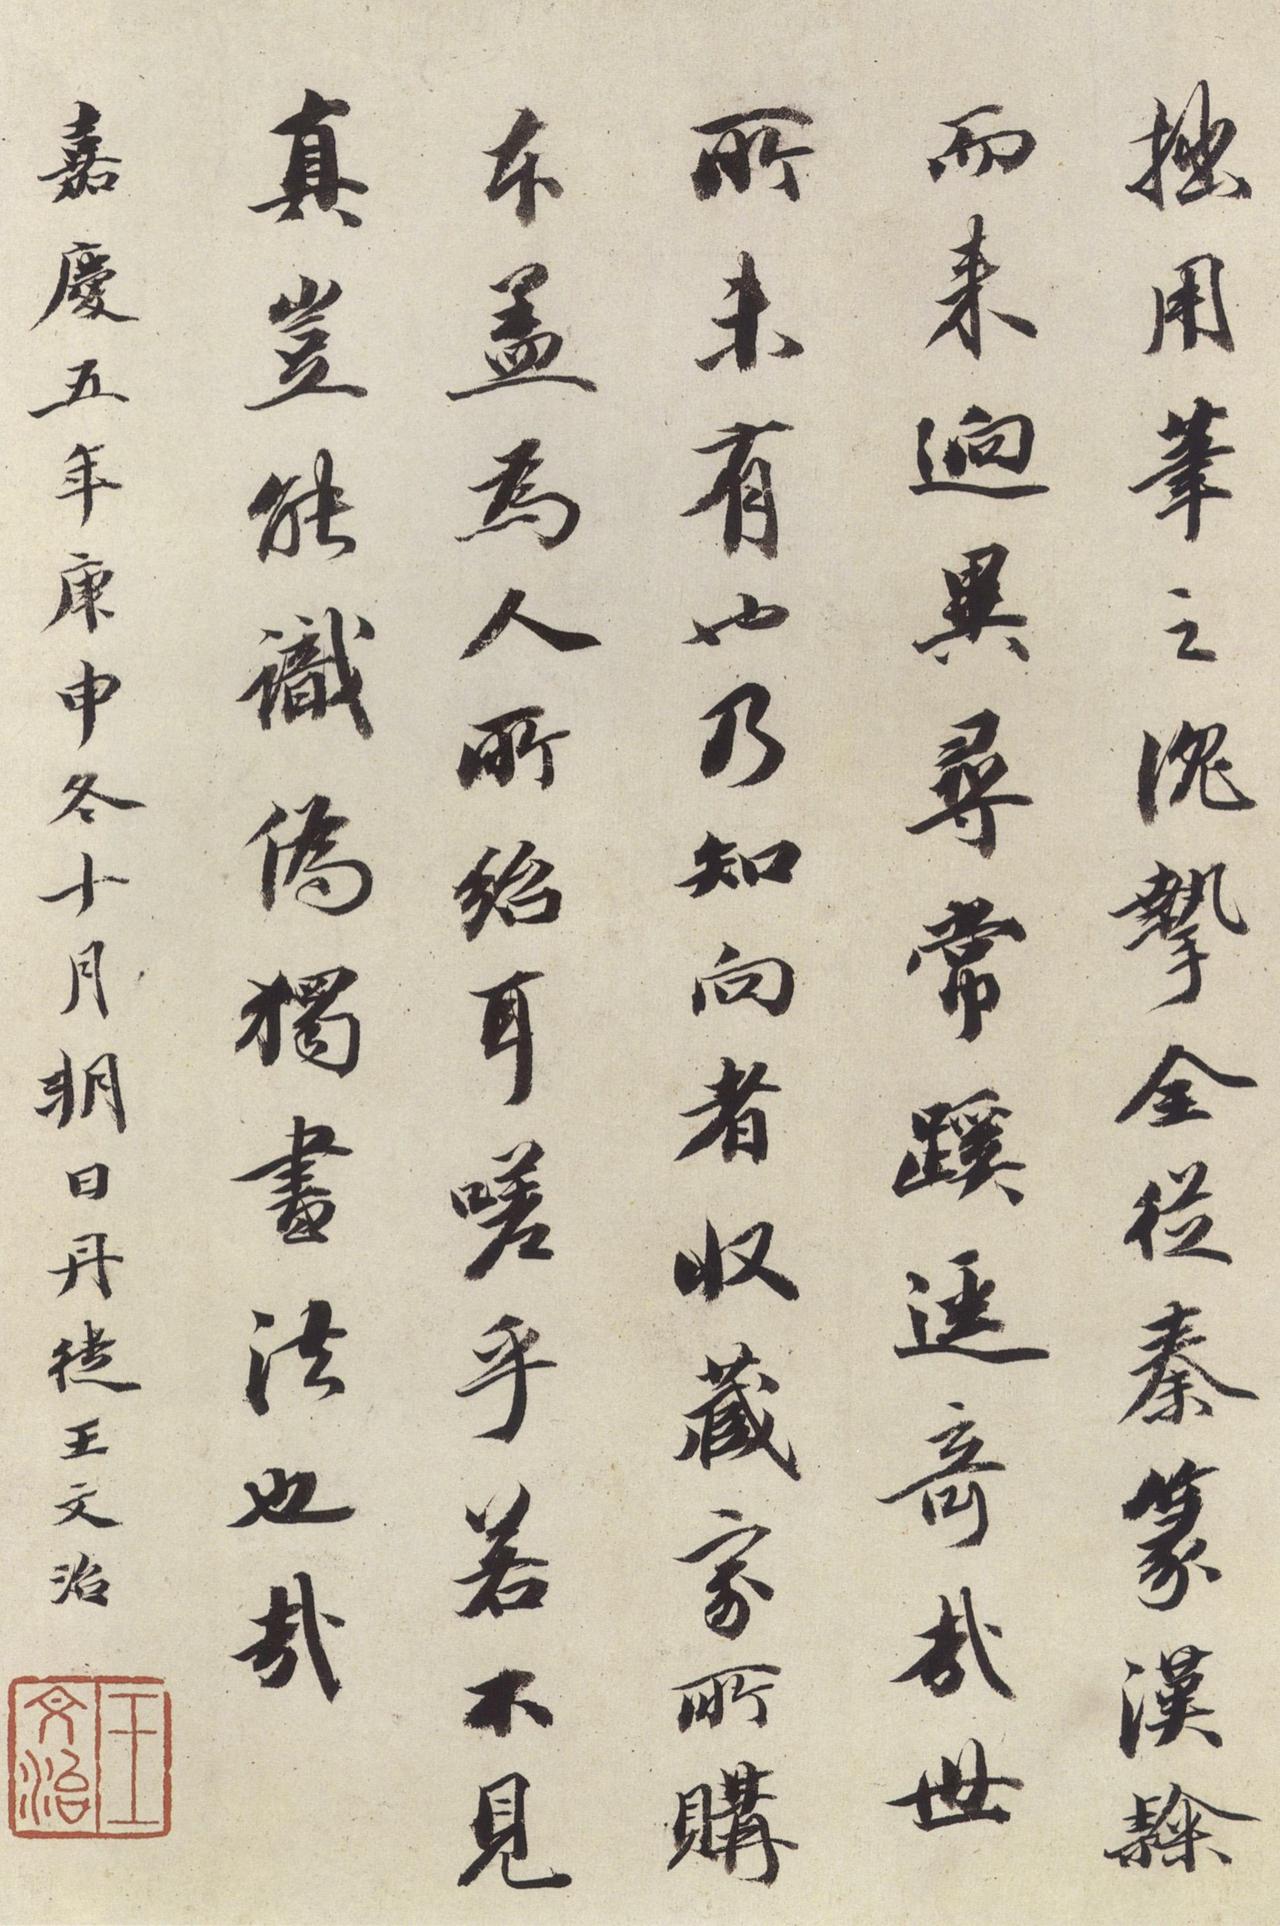 拙用筆之沉摯全從秦篆漢隸
而来迥異尋常蹊逕奇哉世
所未有也乃知向者收藏家所購
本蓋為人所紿耳嗟乎若不見
真豈能識偽獨畫法也哉
嘉慶五年庚申冬十月明日丹徒王文治
王文治